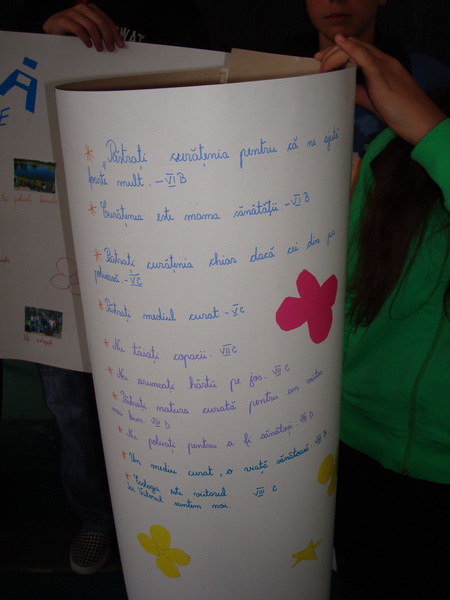 * „Păstrați curățenia pentru că ne ajută
foarte mult. - VI B
* Curățenia este mama sănătății - VI B
* Păstrați curățenia chiar dacă cei din jur
poluează. - V C
* Păstrați mediul curat - V C
* Nu tăiați copacii. VII C
* Nu aruncați hârtii pe jos. VII C
* Păstrați natura curată pentru un viitor
mai bun. VII D
* Nu poluați pentru a fi sănătoși. VII D
* Un mediu curat, o viață sănătoasă. VII D
* Ecologia este viitorul
Iar viitorul suntem noi VIII C
Ă
E